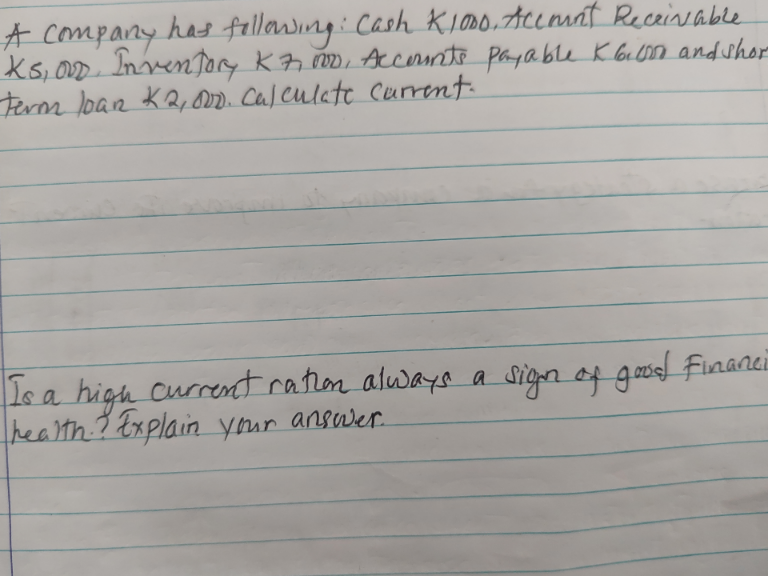 A company has following: Cash K1000, Account Receivable
K5,000, Inventory K7,000, Accounts payable K6,000 and shor
term loan K2,000. Calculate current.
Is a high current ration always a sign of good Financi
health? Explain your answer.